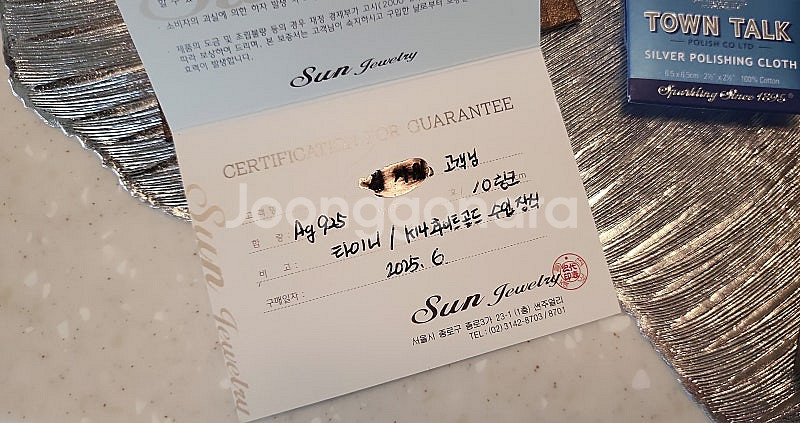 소비자의 과실에 의한 하자 발생 시
제품의 도금 및 조립불량 등의 경우 재정 경제부가 고시(2000
따라 보상하여 드리며, 본 보증서는 고객님이 숙지하시고 구입한 날로부터
효력이 발생합니다.
Sun Jewelry
TOWN TALK
POLISH CO LTD
SILVER POLISHING CLOTH
6.5 x 6.5cm · 2½" x 2½" 100% Cotton
Sparkling Since 1895
CERTIFICATION FOR GUARANTEE
고객님
고객명 :
호 : 10 cm
함 량 : Ag 925
비 고 : 타이니 / K14 화이트골드 수입장식
구매일자 : 2025. 6
Sun Jewelry
서울시 종로구 종로3가 23-1 (1층) 썬주얼리
TEL : (02) 3142-8703 / 8701
Sun Jewelry
Joonggonara